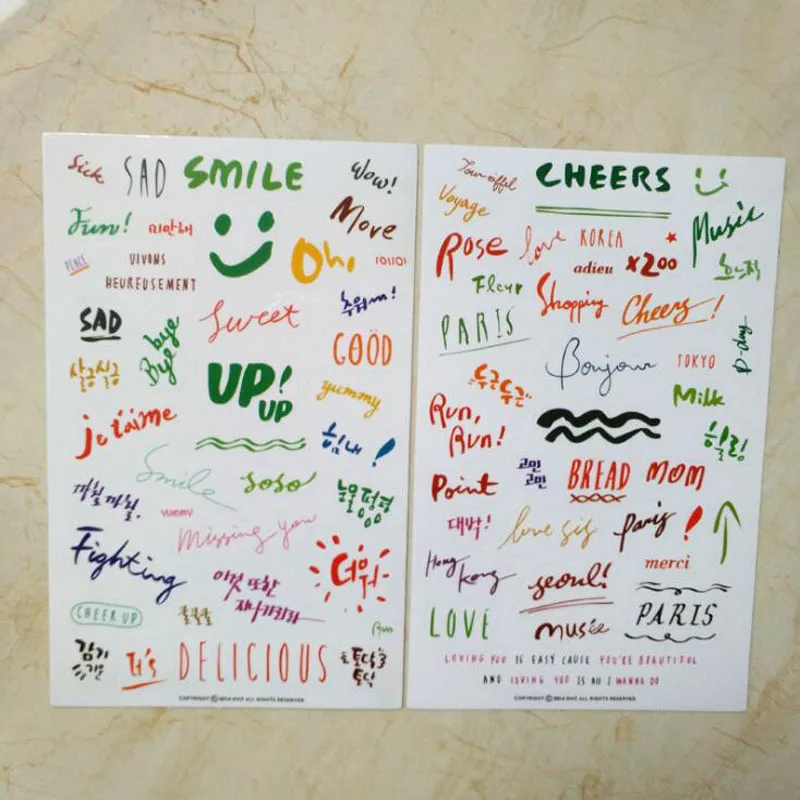 Sick
SAD
SMILE
Wow!
Fun!
미안해
Move
Oh!
PEACE
VIVONS
HEUREUSEMENT
SAD
Bye
bye
Sweet
추워!
GOOD
살금살금
UP!
UP
yummy
je t'aime
힘내!
Smile
soso
까칠까칠
yummy
눈물펑펑
Missing you
Fighting
이것 또한
지나가리라
더워
CHEER UP
Run
감기
조심
It's
DELICIOUS
토닥
토닥
COPYRIGHT © 2014 ALL RIGHTS RESERVED
Tour eiffel
CHEERS
Voyage
Music
Rose
love
KOREA
adieu
x200
흐느적
Fleur
Shopping
Cheers!
PARIS
D-day
Bonjour
TOKYO
두근두근
Milk
Run,
Run!
힐링
Point
고민
고민
BREAD
MOM
대박!
love
paris!
Hong
kong
seoul!
merci
LOVE
music
PARIS
LOVING YOU IS EASY CAUSE YOU'RE BEAUTIFUL
AND LOVING YOU IS ALL I WANNA DO
COPYRIGHT © 2014 ALL RIGHTS RESERVED